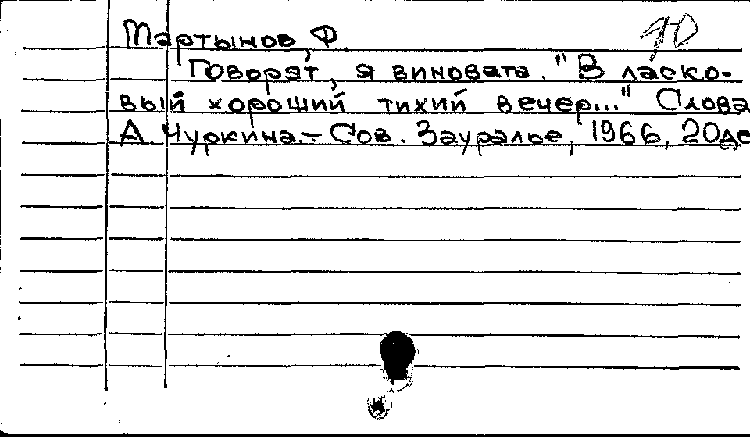 10
Мартынов, Ф.
Говорят, я виновата. "В ласко-
вый хороший тихий вечер..." Слова
А. Чуркина. – Сов. Зауралье, 1966, 20 де